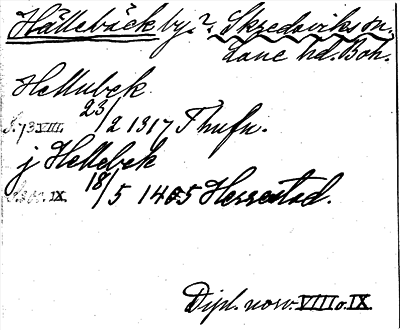 Hällebäck by?, Skredsviks sn.
Lane hd. Boh.
Hellubek
S. 73 VIII. 23/2 1317 Thufn.
j Hellebek
IX. 18/5 1405 Herrestad.
Dipl. norv. VIII o. IX.